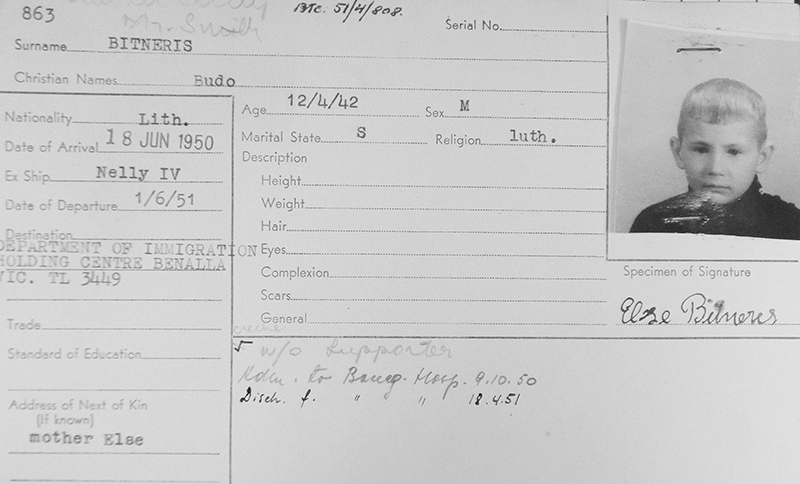 863
Mr. Smith
BTC. 51/4/808.
Serial No.
Surname BITNERIS
Christian Names Budo
Nationality Lith.
Date of Arrival 18 JUN 1950
Ex Ship Nelly IV
Date of Departure 1/6/51
Destination
DEPARTMENT OF IMMIGRATION
HOLDING CENTRE BENALLA
VIC. TL 3449
Trade
Standard of Education
Address of Next of Kin
(If known)
mother Else
Age 12/4/42 Sex M
Marital State S Religion luth.
Description
Height
Weight
Hair
Eyes
Complexion
Scars
General
creche
w/o Supporter
Adm. to Boneg. Hosp. 9.10.50
Disch. f. " " 18.4.51
Specimen of Signature
Else Bitneris